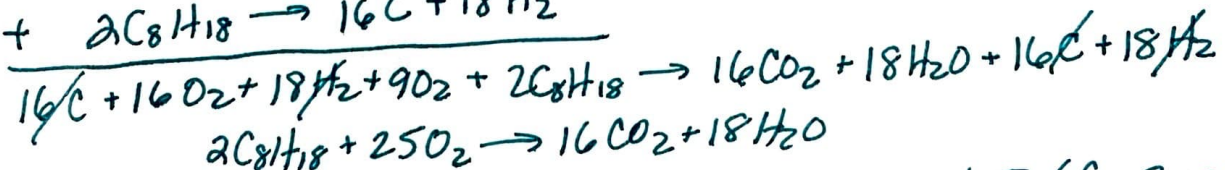 + 2C8H18 → 16C + 18H2
16C + 16O2 + 18H2 + 9O2 + 2C8H18 → 16CO2 + 18H2O + 16C + 18H2
2C8H18 + 25O2 → 16CO2 + 18H2O